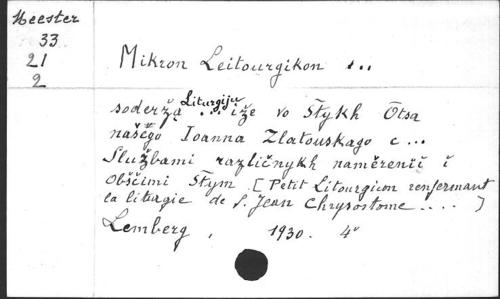 Meester
33
21
2
Mikron Leitourgikon ...
Liturgiju
soderžą ... iže vo Stykh Ōtsa
našego Ioanna Zlatouskago c ...
Službami različnykh naměrenii i
obščimi Stym [Petit Litourgion renfermant
la liturgie de S. Jean Chrysostome .... ]
Lemberg, 1930. 4º